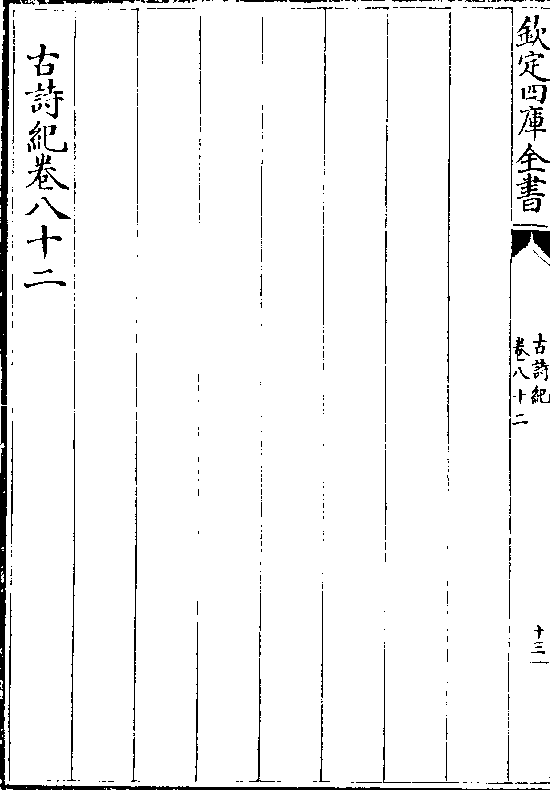 欽定四庫全書
古詩紀
卷八十二
十三
古詩紀卷八十二